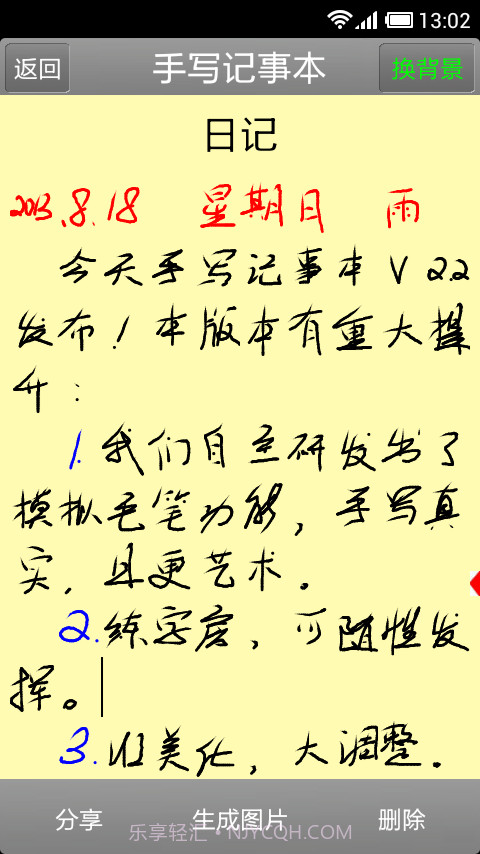 13:02
返回 手写记事本 换背景
日记
2013.8.18 星期日 雨
今天手写记事本V2.2
发布！本版本有重大提
升：
1.我们自主研发出了
模拟毛笔功能，手写真
实，且更艺术。
2.练字房，可随性发
挥。
3.UI美化，大调整。
分享 生成图片 删除
乐享轻汇·NJYCQH.COM